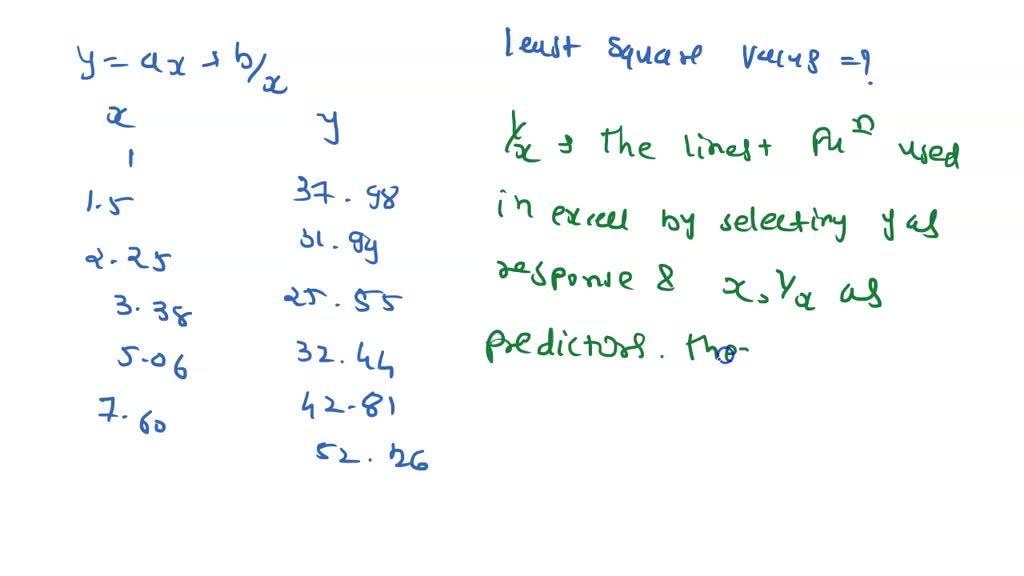 y = ax + b/x
x y
1 37.98
1.5 31.94
2.25 25.55
3.38 32.44
5.06 42.81
7.60 52.26
least square values = ?
1/x s the linest fu^n used
in excell by selecting y as
response & x, 1/x as
predictors. the